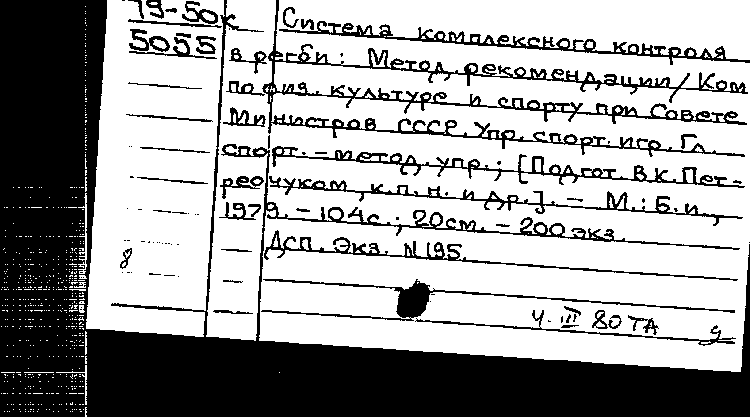 79-50к
5055
Система комплексного контроля
в регби: Метод. рекомендации / Ком
по физ. культуре и спорту при Совете
Министров СССР. Упр. спорт. игр. Гл.
спорт.-метод. упр.; [Подгот. В.К. Пет-
реочуком, к.п.н. и др.]. - М.: Б.и.,
1979. - 104с.; 20см. - 200 экз.
ДСП. Экз. N 195.
8
4. III 80 ТА